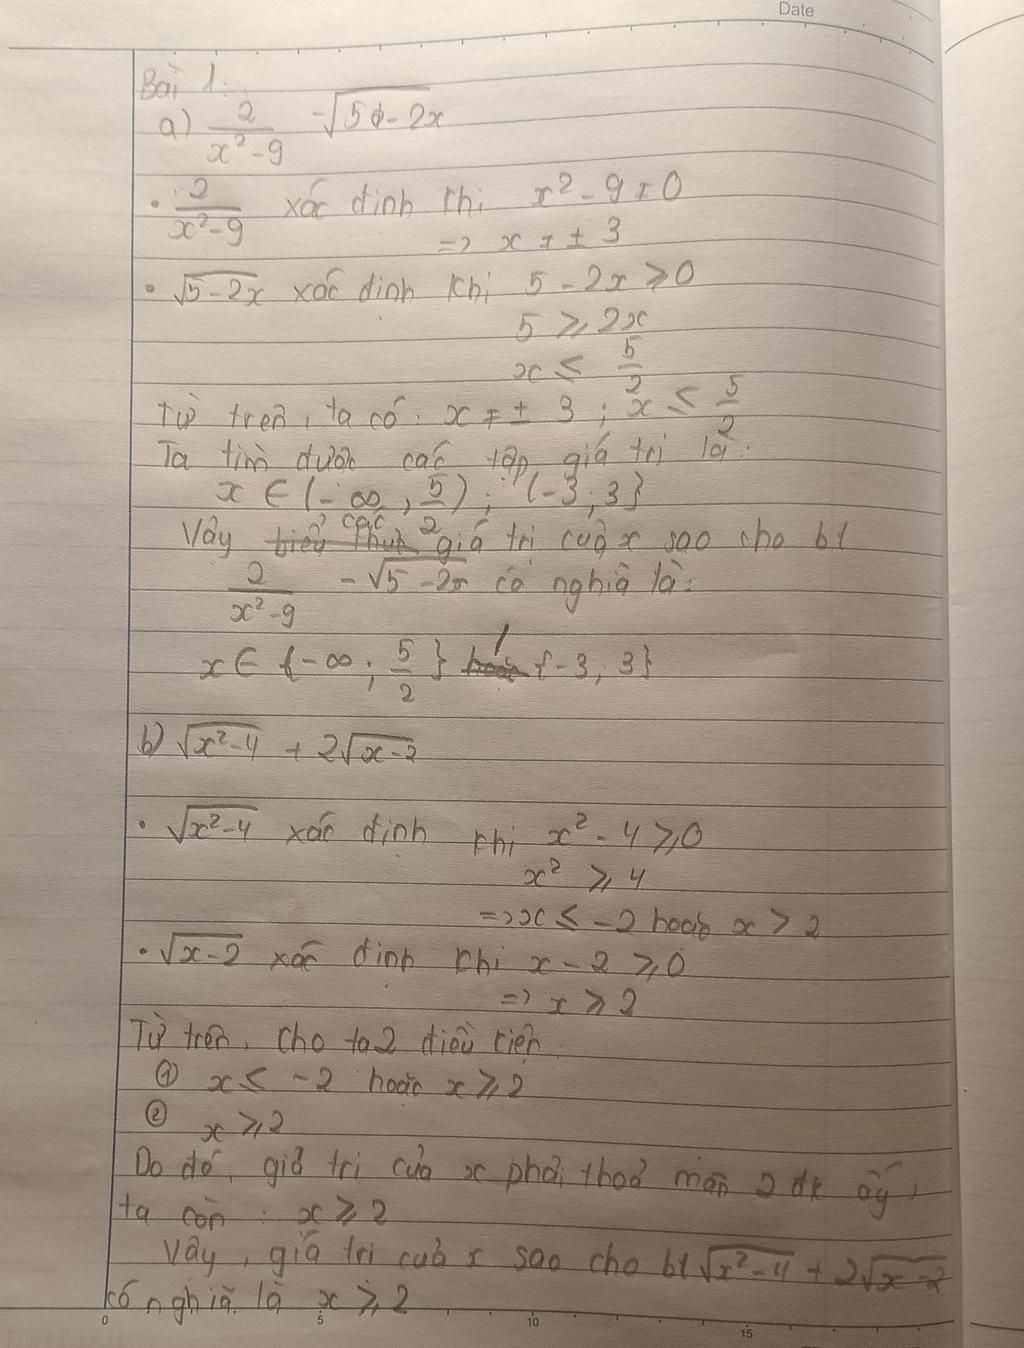 Date
Bài 1:
a) 2/(x² - 9) - √(5 - 2x)
• 2/(x² - 9) xác định khi x² - 9 ≠ 0
=> x ≠ ± 3
• √(5 - 2x) xác định khi 5 - 2x ⩾ 0
5 ⩾ 2x
x ≤ 5/2
Từ trên, ta có: x ≠ ± 3 ; x ≤ 5/2
Ta tìm được các tập giá trị là:
x ∈ (-∞, 5/2) ; {-3; 3}
Vậy các giá trị của x sao cho bt
2/(x² - 9) - √(5 - 2x) có nghĩa là:
x ∈ {-∞ ; 5/2} / {-3; 3}
b) √(x² - 4) + 2√(x - 2)
• √(x² - 4) xác định khi x² - 4 ⩾ 0
x² ⩾ 4
=> x ≤ -2 hoặc x > 2
• √(x - 2) xác định khi x - 2 ⩾ 0
=> x ⩾ 2
Từ trên, cho ta 2 điều kiện
① x ≤ -2 hoặc x ⩾ 2
② x ⩾ 2
Do đó, giá trị của x phải thoả mãn 2 đk ấy,
ta còn : x ⩾ 2
Vậy, giá trị của x sao cho bt √(x² - 4) + 2√(x - 2)
có nghĩa là x ⩾ 2
0 5 10 15